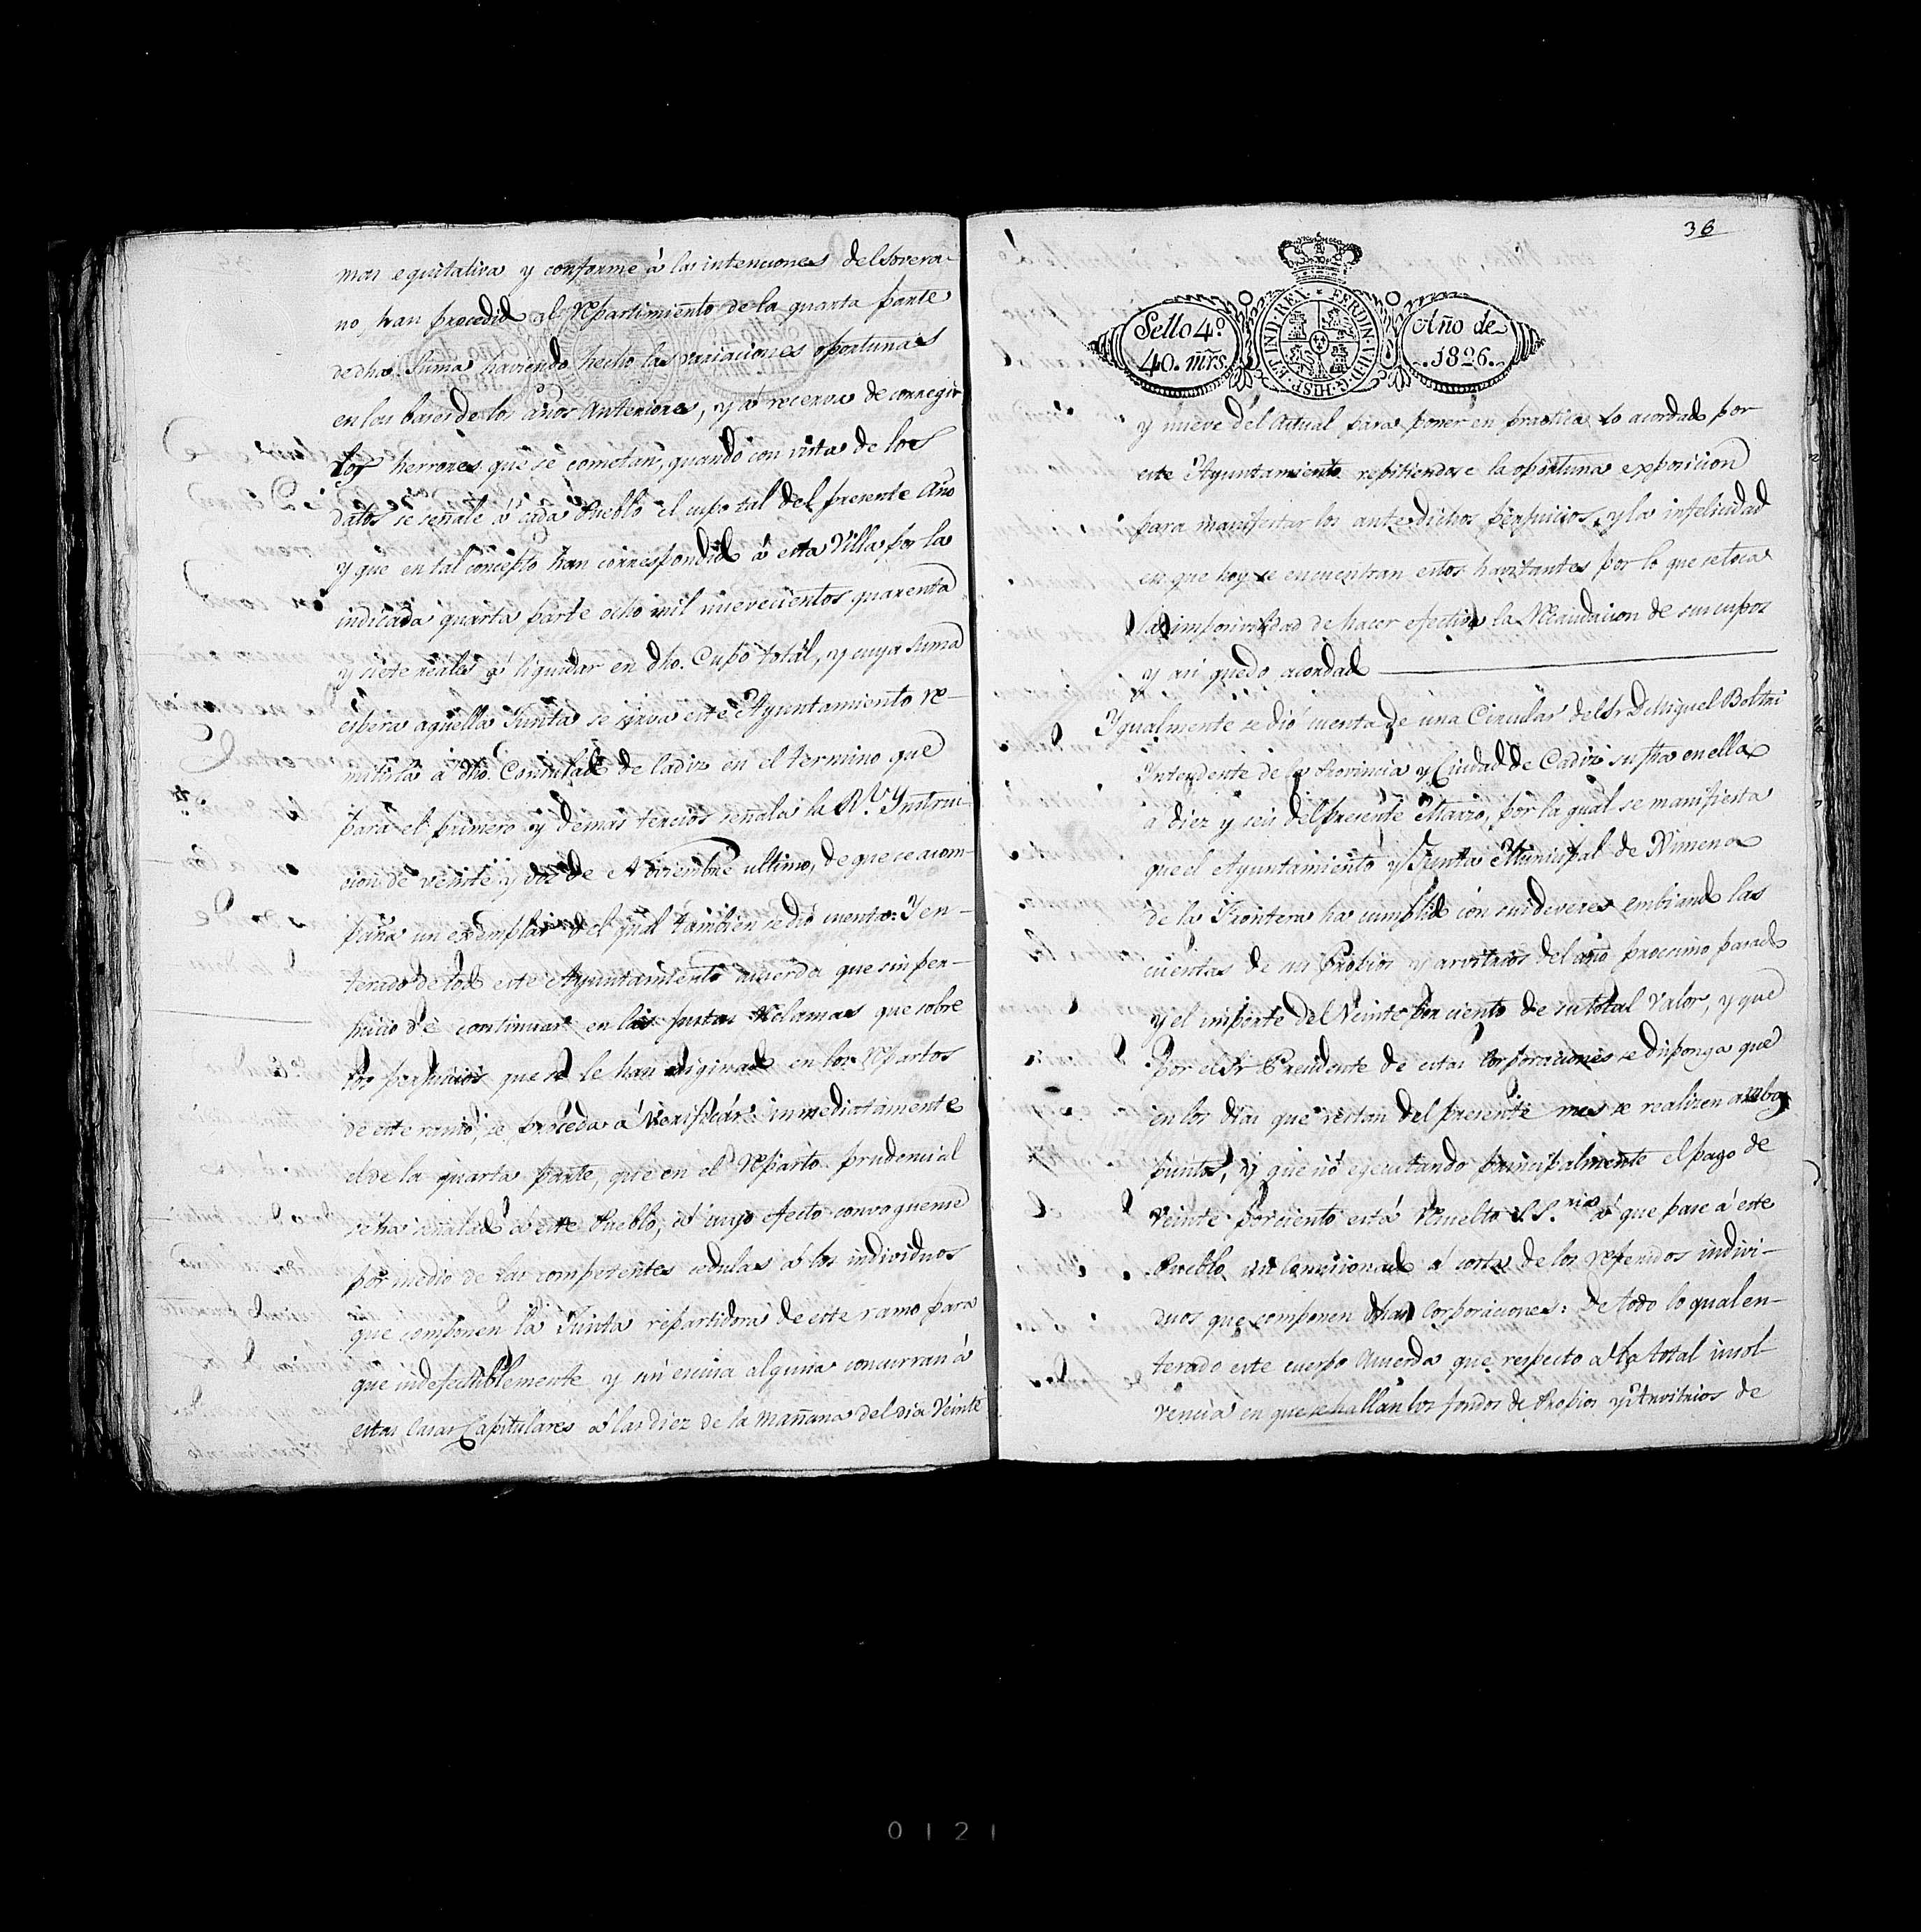 mas equitativa y conforme á las intenciones del Sovera-
no han procedido al Repartimiento de la quarta parte
de dha. Suma haviendo hecho las variaciones oportunas
en las bases de los años Anteriores, y á recerva de corregir
los herrores que se cometan, quando con vista de los
datos se señale á cada Pueblo el cupo tal del presente Año
y que en tal concepto han correspondido á esta Villa por la
indicada quarta parte ocho mil nuevecientos quarenta
y siete reales á liquidar en dho. Cupo total, y cuya Suma
espera aquella Junta se sirva este Ayuntamiento re-
mitirla á dho. Consulado de Cadiz en el termino que
para el primero y demas tercios señala la Rl. Ynstruc-
cion de veinte y dos de Noviembre ultimo, de que se acom-
paña un exemplar del qual tambien se dió cuenta: Y en-
terado de todo este Ayuntamiento acuerda que sin per-
juicio de continuar en las justas Reclamas que sobre
los perjuicios que se le han originado en los Repartos
de este ramo, se proceda á Verificar inmediatamente
el de la quarta parte, que en el Reparto prudencial
se ha señalado á este Pueblo, á cuyo efecto convoquense
por medio de las competentes cedulas á los individuos
que componen la Junta repartidora de este ramo para
que indefectiblemente y sin escusa alguna concurran á
estas Casas Capitulares á las diez de la mañana del dia Veinte
36
Sello 4.º
40. mrs.
HISP. ET IND. REX. FERDIN. VII. D. G.
Año de
1826.
y nueve del Actual para poner en practica lo acordado por
este Ayuntamiento repitiendose la oportuna exposicion
para manifestar los antedichos perjuicios, y la infelicidad
en que hoy se encuentran estos havitantes por lo que se toca
la imposivilidad de hacer efectiva la Recaudacion de sus cupos
y asi quedo acordado
Ygualmente se dió cuenta de una Circular del Sr. D. Miguel Boltri
Yntendente de la Provincia y Ciudad de Cadiz su fha en ella
a diez y seis del presente Marzo, por la qual se manifiesta
que el Ayuntamiento y Junta Municipal de Ximena
de la Frontera ha cumplido con sus deveres embiando las
cuentas de sus Propios y arvitrios del año procsimo pasado
y el importe del Veinte por ciento de su total Valor, y que
Por el Sr. Presidente de estas Corporaciones se disponga que
en los dias que restan del presente mes se realizen ambos
puntos, y que no ejecutando principalmente el pago de
Veinte por ciento está Resuelto S.S.ria á que pase á este
Pueblo un Comisionado á costa de los referidos indivi-
duos que componen dhas Corporaciones: De todo lo qual en-
terado este cuerpo Acuerda que respecto á la total insol-
vencia en que se hallan los fondos de Propios y Arvitrios de
0121